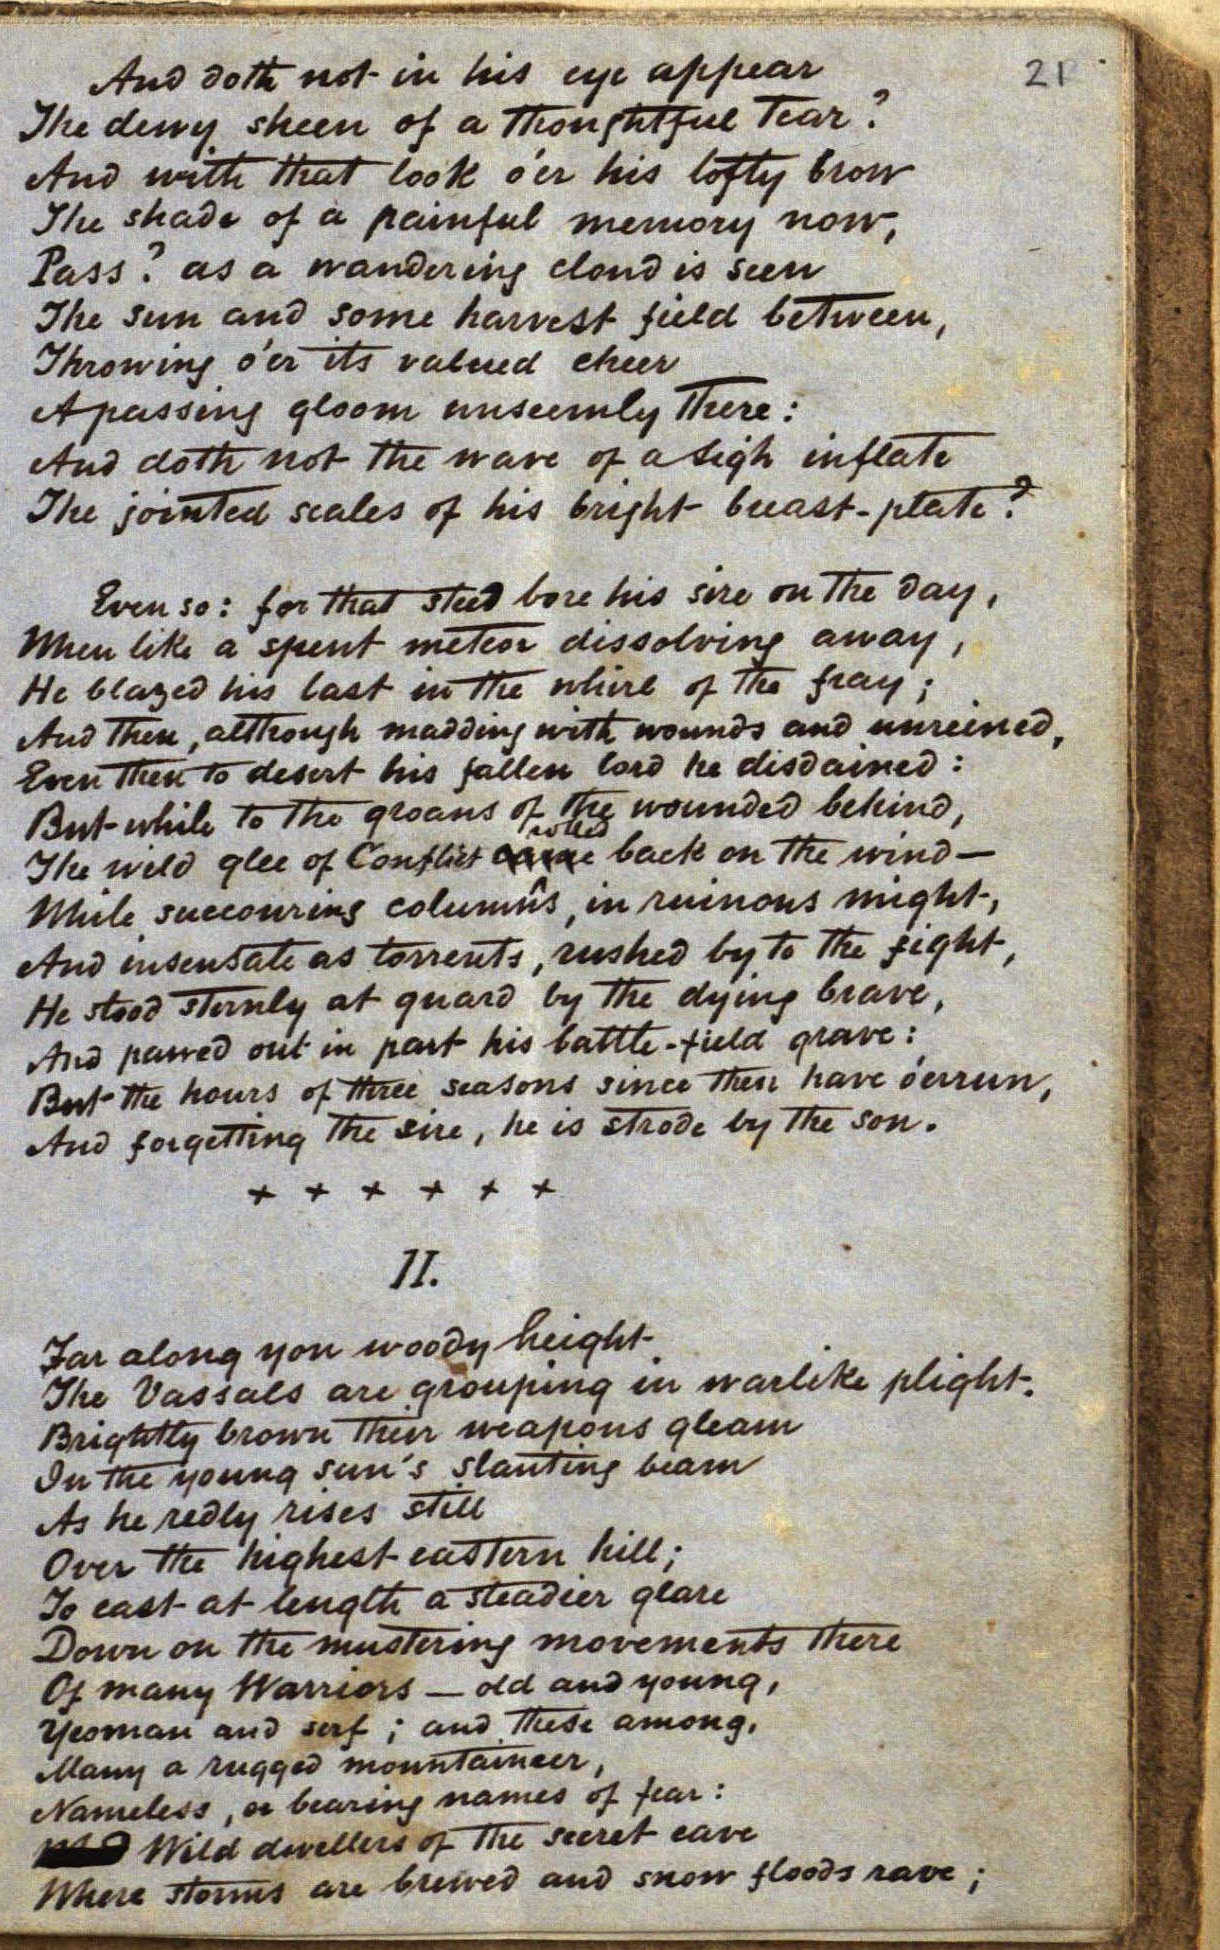 21
And doth not in his eye appear
The dewy sheen of a thoughtful tear?
And with that look o'er his lofty brow
The shade of a painful memory now,
Pass? as a wandering cloud is seen
The sun and some harvest field between,
Throwing o'er its valued cheer
A passing gloom unseemly there:
And doth not the wave of a sigh inflate
The jointed scales of his bright breast-plate?
Even so: for that steed bore his sire on the day,
When like a spent meteor dissolving away,
He blazed his last in the whirl of the fray;
And then, although madding with wounds and unreined,
Even then to desert his fallen lord he disdained:
But while to the groans of the wounded behind,
rolled
The wild glee of Conflict came back on the wind—
While succouring columns, in ruinous might,
And insensate as torrents, rushed by to the fight,
He stood sternly at guard by the dying brave,
And pawed out in part his battle-field grave:
But the hours of three seasons since then have o'errun,
And forgetting the sire, he is strode by the son.
+ + + + + +
II.
Far along yon woody height
The Vassals are grouping in warlike plight.
Brightly brown their weapons gleam
In the young sun's slanting beam
As he redly rises still
Over the highest eastern hill;
To cast at length a steadier glare
Down on the mustering movements there
Of many Warriors — old and young,
Yeoman and serf; and these among,
Many a rugged mountaineer,
Nameless, or bearing names of fear:
Wild dwellers of the secret cave
Where storms are brewed and snow floods rave;